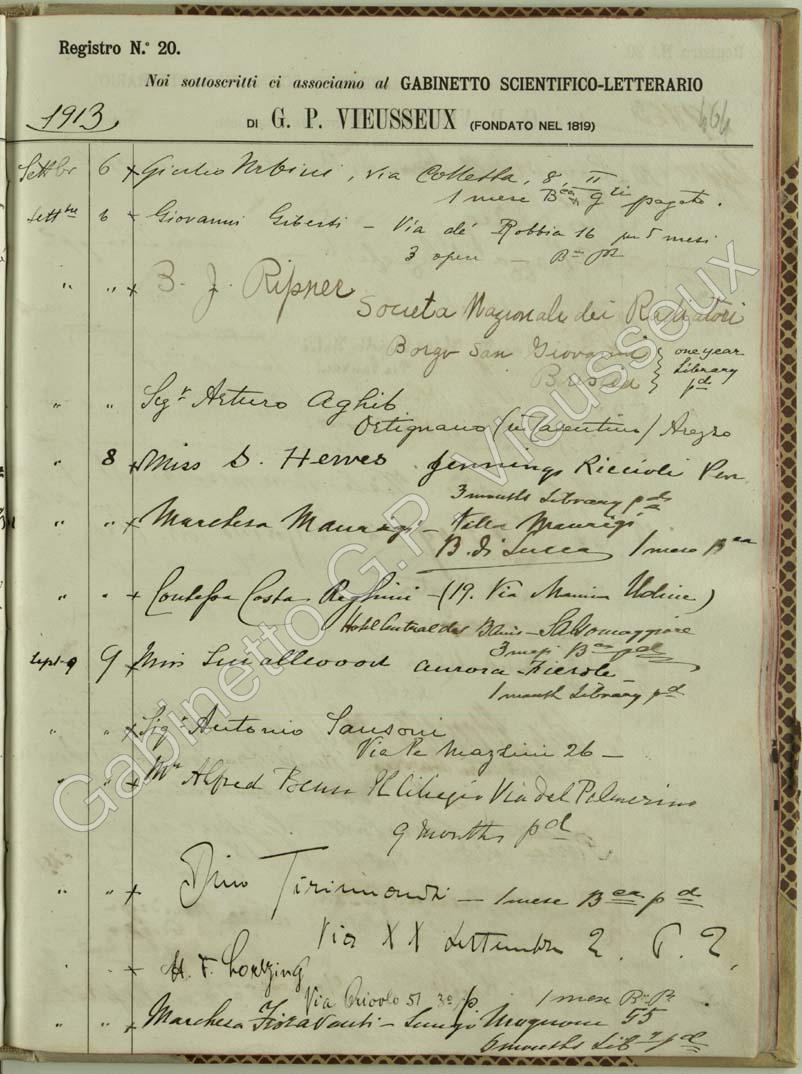 Registro N.° 20.
Noi sottoscritti ci associamo al GABINETTO SCIENTIFICO-LETTERARIO
1913
DI G. P. VIEUSSEUX (FONDATO NEL 1819)
464
Settbr 6 x Giulio Urbini, via Colletta, 8, II
1 mese Bca pagato.
Settbre 6 x Giovanni Giberti - Via de' Robbia 16 per 5 mesi
3 opere -
" " x B. J. Ripner
Societa Nazionale dei Radiatori
Borgo San Giovanni } one year
Brescia } Library pd
" " x Sigr Arturo Aghib
Ortignano (in Casentino) Arezzo
" 8 x Miss D. Herves Jennings Riccioli Pen
3 months Library pd
" " x Marchesa Maurigi - Villa Maurigi
B. di Lucca 1 mese Bca
" " x Contessa Costa Reghini - (19. Via Manin Udine)
Hotel Central des Bains - Salsomaggiore
3 mesi Bca pd
Sept 9 9 x Miss Smallwood Aurora - Fiesole -
1 month Library pd
" " x Sigr Antonio Sansoni
Via Pe Mazzini 26 -
" " x Mr Alfred Benn Il Ciliegio Via del Palmerino
9 months pd
" " x Dino Tirimondi - 1 mese Bca pd
Via XX Settembre 2. P. 2,
" x H. F. Lortzing
Via Oriolo 51 3o p 1 mese
" " x Marchesa Fioravanti - Lungo Mugnone 55
6 months Liby pd
Gabinetto G.P. Vieusseux